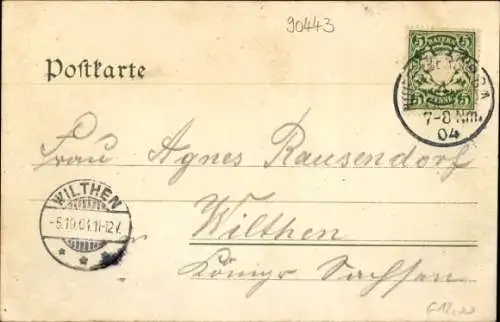 90443
Postkarte
5 BAYERN 5
PFENNIG
7-8 Nm.
04
Frau Agnes Rausendorf
Wilthen
Königr Sachsen
WILTHEN
-5.10.04.11-12V.